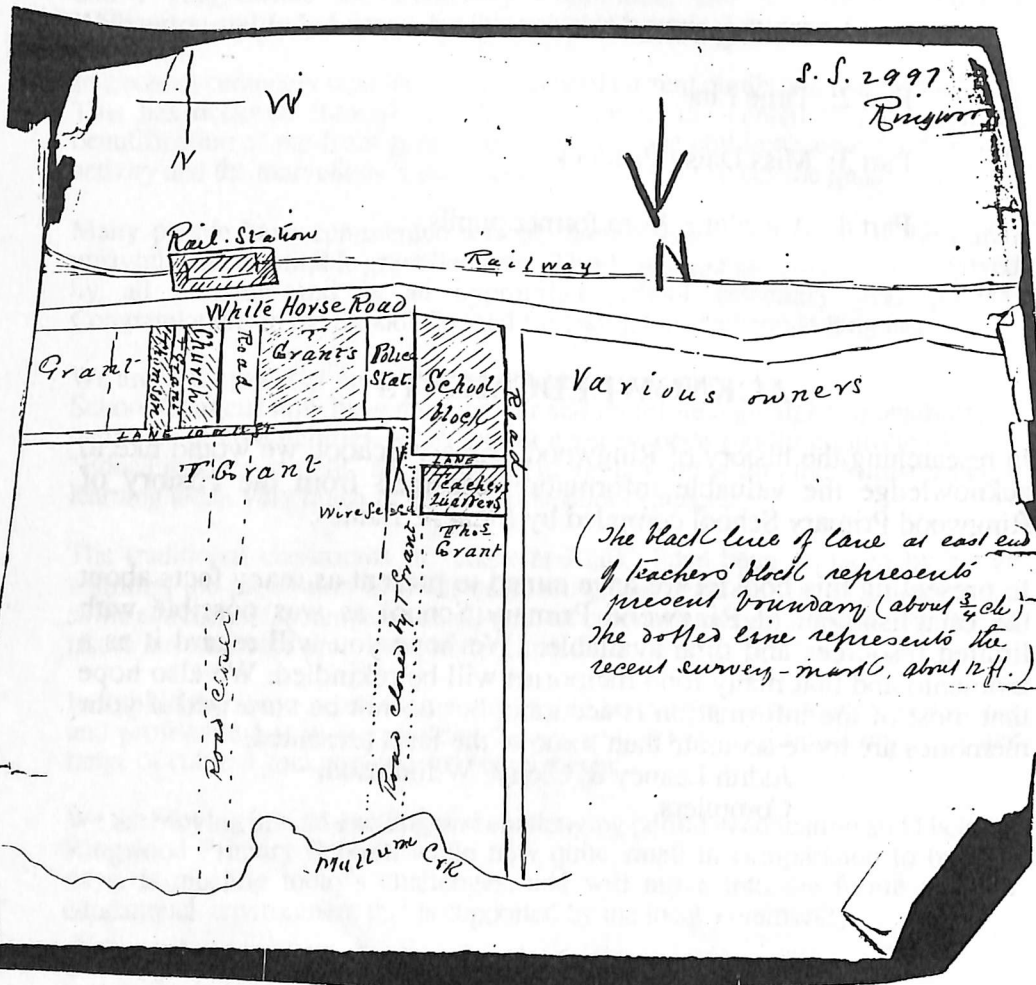 S. S. 2997
W
N
Rail. Station
Railway
N
White Horse Road
Grant
T Grant
Church
Road
Grants
Police
Stat.
School
block
Road
Various owners
LANE
T Grant
LANE
Teachers
Quarters
Thos
Grant
Road closed
Road closed
Mullum Crk
( The black line of lane at east end
of teachers' block represents
present boundary (about ¾ ch)
The dotted line represents the
recent survey mark about